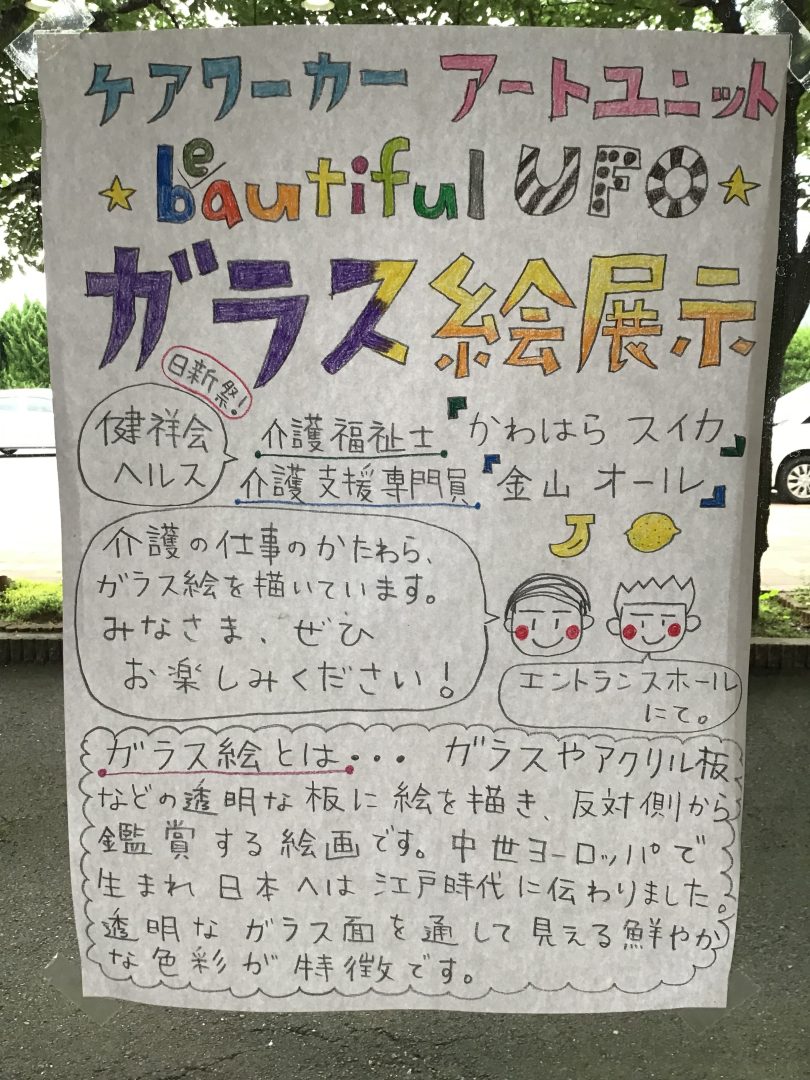 ケアワーカー アートユニット
beautiful UFO
ガラス絵展示
日新祭!
健祥会
ヘルス
介護福祉士『かわはら スイカ』
介護支援専門員『金山 オール』
介護の仕事のかたわら、
ガラス絵を描いています。
みなさま、ぜひ
お楽しみください!
エントランスホール
にて。
ガラス絵とは・・・ ガラスやアクリル板
などの透明な板に絵を描き、反対側から
鑑賞する絵画です。中世ヨーロッパで
生まれ日本へは江戸時代に伝わりました。
透明なガラス面を通して見える鮮やか
な色彩が特徴です。